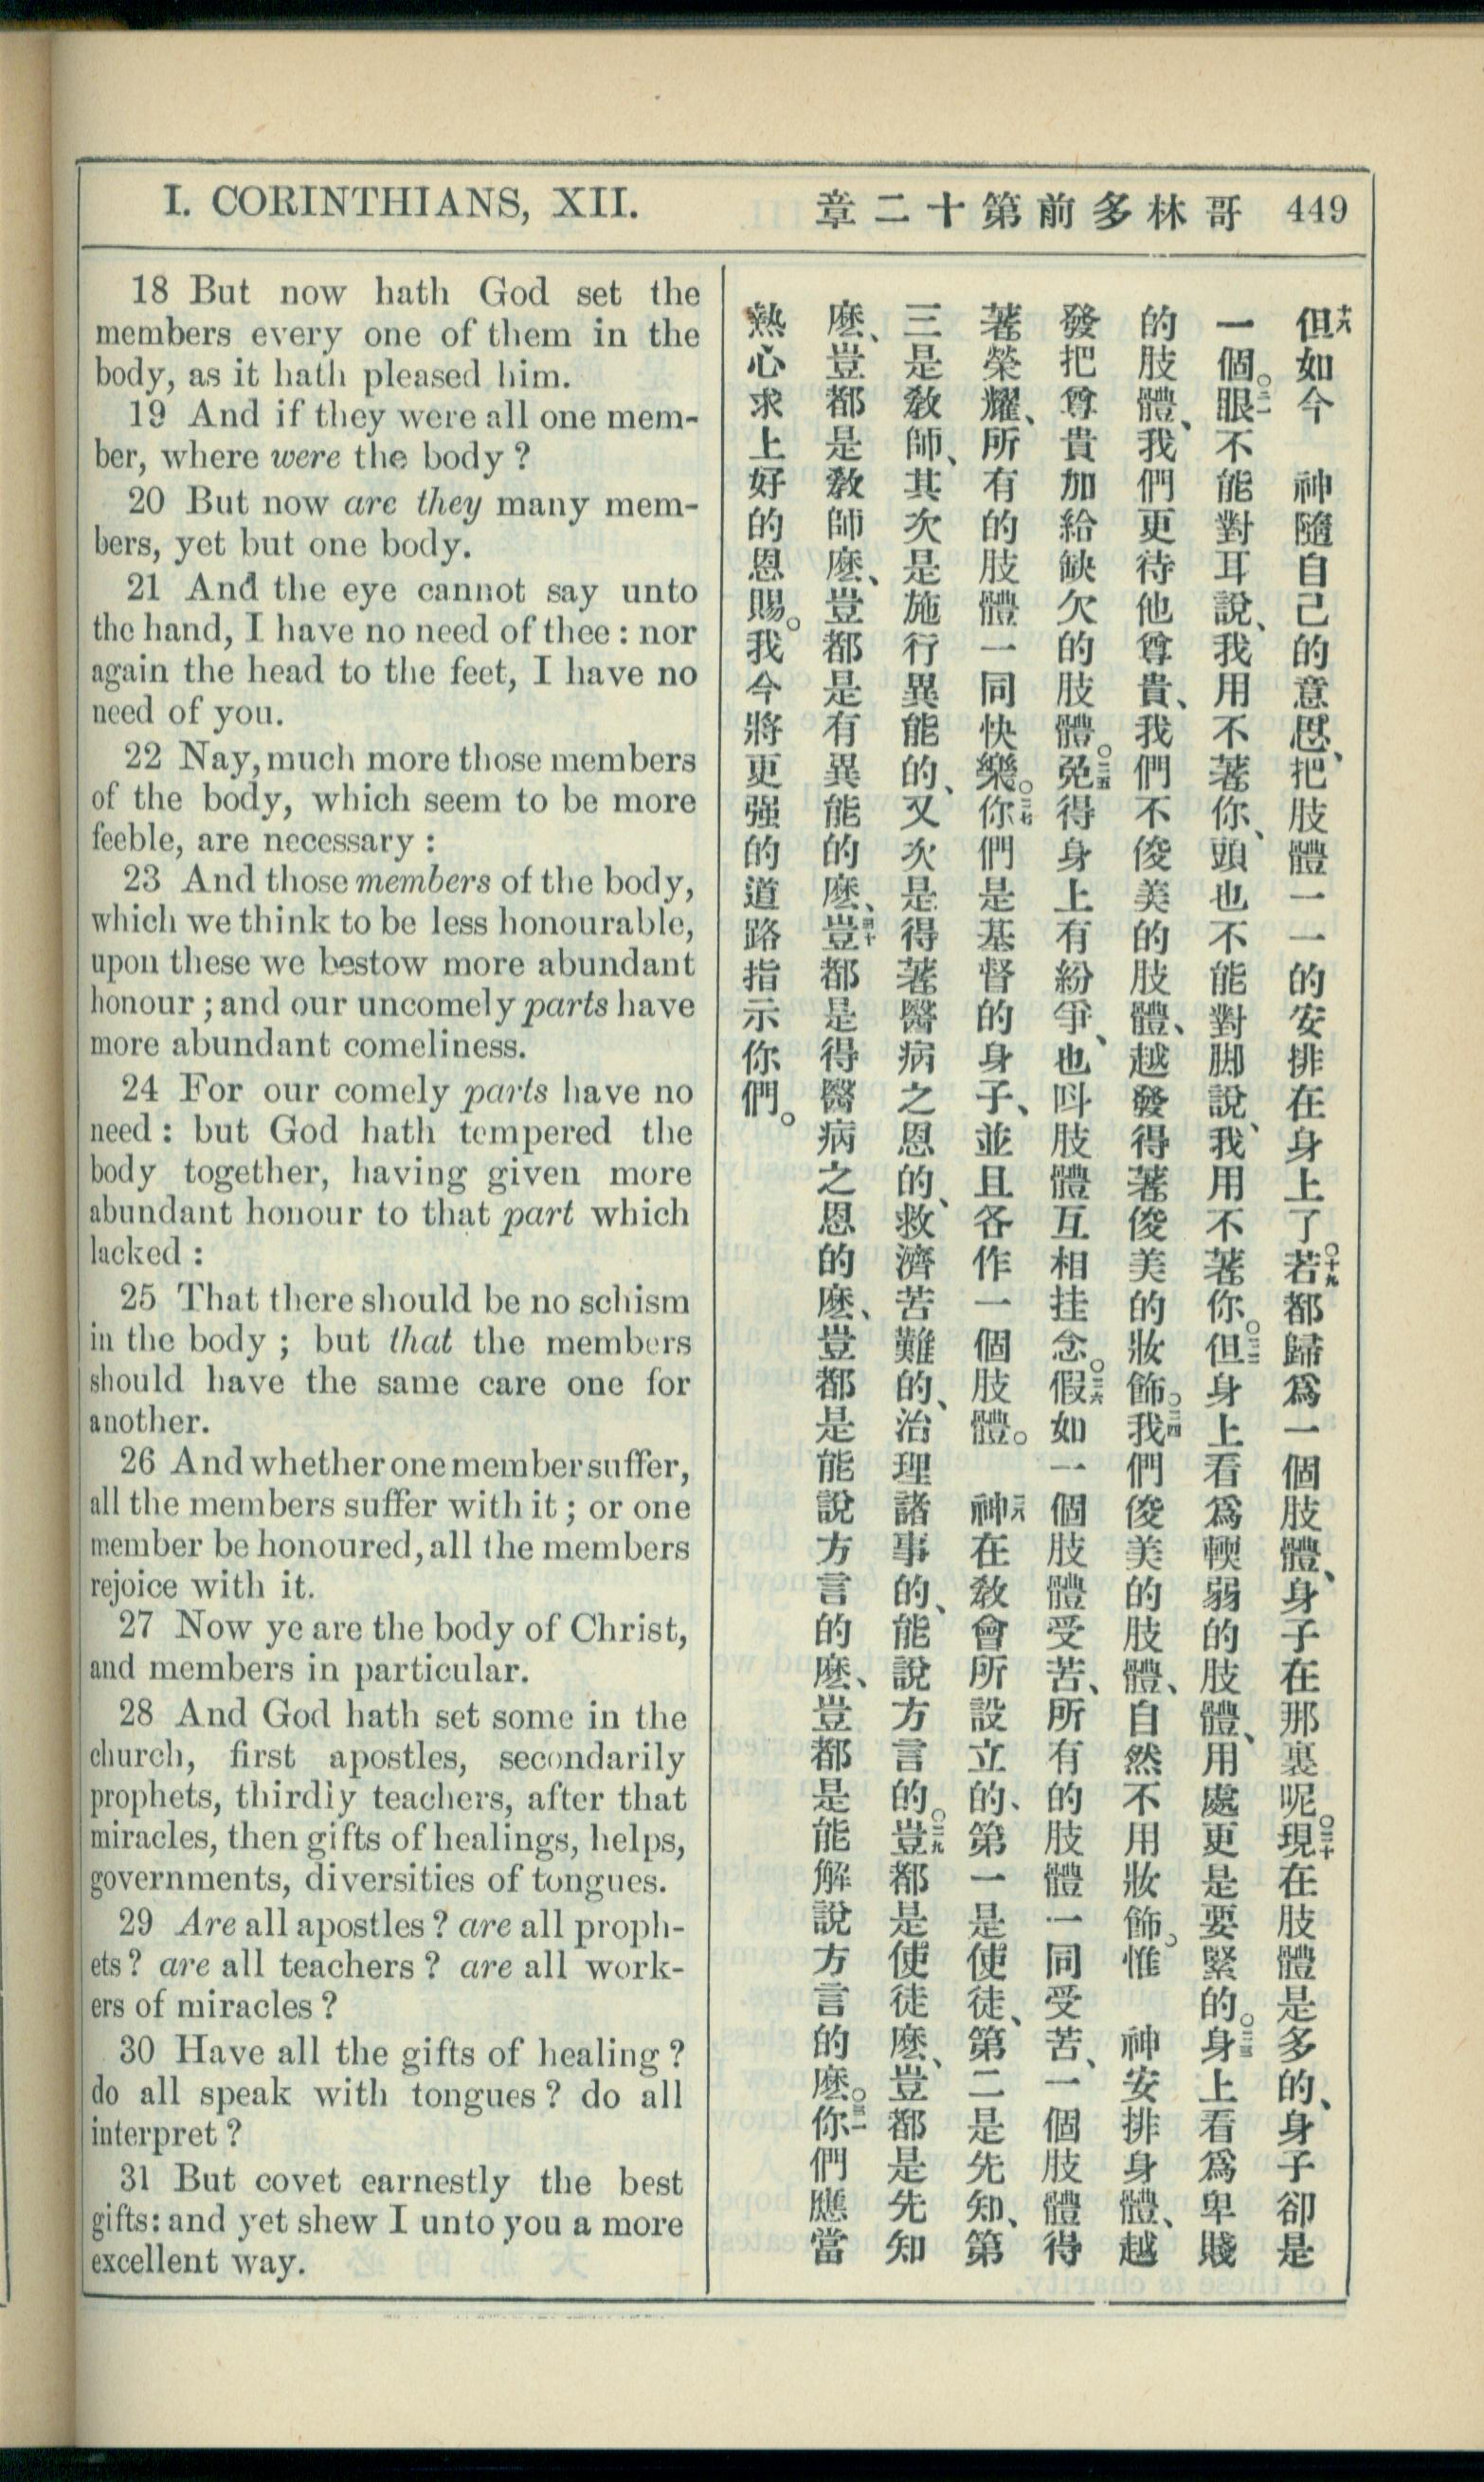 I. CORINTHIANS, XII.
章二十第前多林哥 449
18 But now hath God set the
members every one of them in the
body, as it hath pleased him.
19 And if they were all one mem-
ber, where were the body ?
20 But now are they many mem-
bers, yet but one body.
21 And the eye cannot say unto
the hand, I have no need of thee : nor
again the head to the feet, I have no
need of you.
22 Nay, much more those members
of the body, which seem to be more
feeble, are necessary :
23 And those members of the body,
which we think to be less honourable,
upon these we bestow more abundant
honour ; and our uncomely parts have
more abundant comeliness.
24 For our comely parts have no
need : but God hath tempered the
body together, having given more
abundant honour to that part which
lacked :
25 That there should be no schism
in the body ; but that the members
should have the same care one for
another.
26 And whether one member suffer,
all the members suffer with it ; or one
member be honoured, all the members
rejoice with it.
27 Now ye are the body of Christ,
and members in particular.
28 And God hath set some in the
church, first apostles, secondarily
prophets, thirdly teachers, after that
miracles, then gifts of healings, helps,
governments, diversities of tongues.
29 Are all apostles ? are all proph-
ets ? are all teachers ? are all work-
ers of miracles ?
30 Have all the gifts of healing ?
do all speak with tongues ? do all
interpret ?
31 But covet earnestly the best
gifts: and yet shew I unto you a more
excellent way.
十八但如今 神隨自己的意思、把肢體一一的安排在身上了○十九若都歸爲一個肢體、身子在那裏呢。○二十現在肢體是多的、身子卻是
一個。○二一眼不能對耳說、我用不著你、頭也不能對脚說、我用不著你。○二二但身上看爲輭弱的肢體、用處更是要緊的。○二三身上看爲卑賤
的肢體、我們更待他尊貴、我們不俊美的肢體、越發得著俊美的妝飾。○二四我們俊美的肢體、自然不用妝飾。惟 神安排身體、越
發把尊貴加給缺欠的肢體。○二五免得身上有紛爭、也呌肢體互相挂念。○二六假如一個肢體受苦、所有的肢體一同受苦、一個肢體得
著榮耀、所有的肢體一同快樂。○二七你們是基督的身子、並且各作一個肢體。 二八神在敎會所設立的、第一是使徒、第二是先知、第
三是敎師、其次是施行異能的、又次是得著醫病之恩的、救濟苦難的、治理諸事的、能說方言的。○二九豈都是使徒麽、豈都是先知
麽、豈都是敎師麽、豈都是有異能的麽、三十豈都是得醫病之恩的麽、豈都是能說方言的麽、豈都是能解說方言的麽。○三一你們應當
熱心求上好的恩賜。我今將更强的道路指示你們。